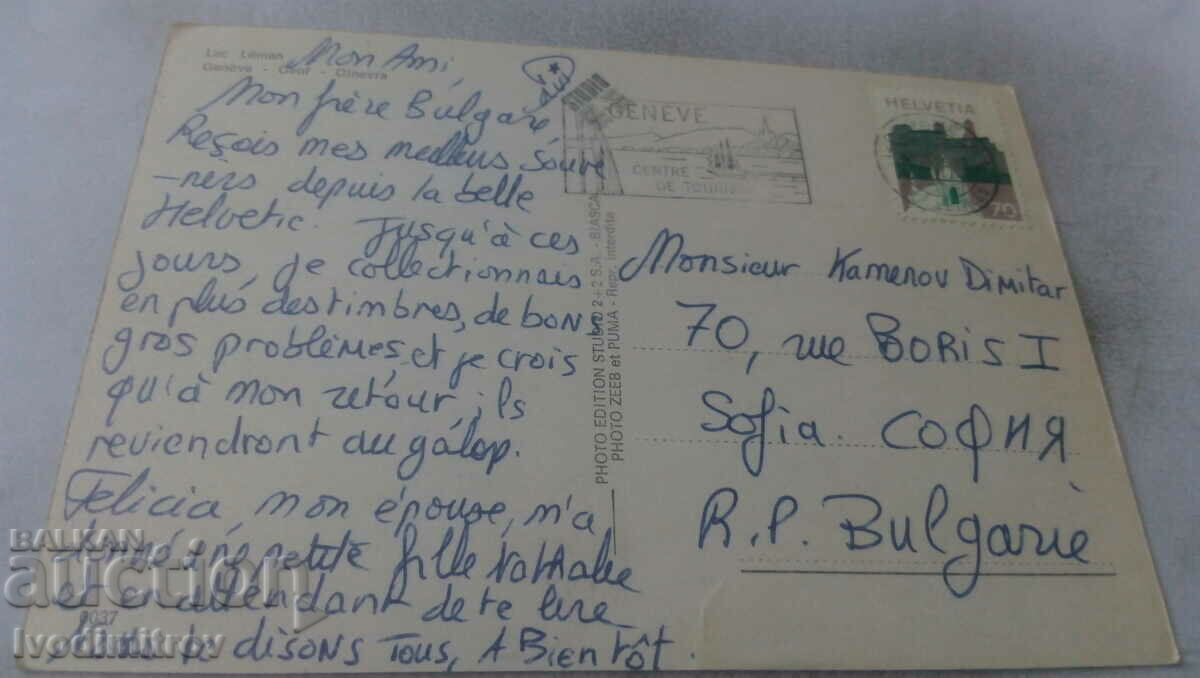 Lac Léman
Genève - Genf - Ginevra
Mon Ami,
Mon frère Bulgare
Reçois mes meilleurs Souve
-nirs depuis la belle
Helvetie. Jusqu'à ces
jours, je collectionnais
en plus des timbres, de bons
gros problèmes, et je crois
qu'à mon retour, ils
reviendront au galop.
Felicia, mon épouse, m'a
une petite fille Nathalie
et en attendant de te lire
disons Tous, A Bientôt.
9037
GENEVE
CENTRE
DE TOURIS
HELVETIA
70
PHOTO EDITION STUDIO 2+2 S.A. - BIASCA
PHOTO ZEEB et PUMA - Repr. interdite
Monsieur Kamenov Dimitar
70, rue BORIS I
Sofia. СОФИЯ
R.P. Bulgarie
BALKAN
auction
Ivodimitrov